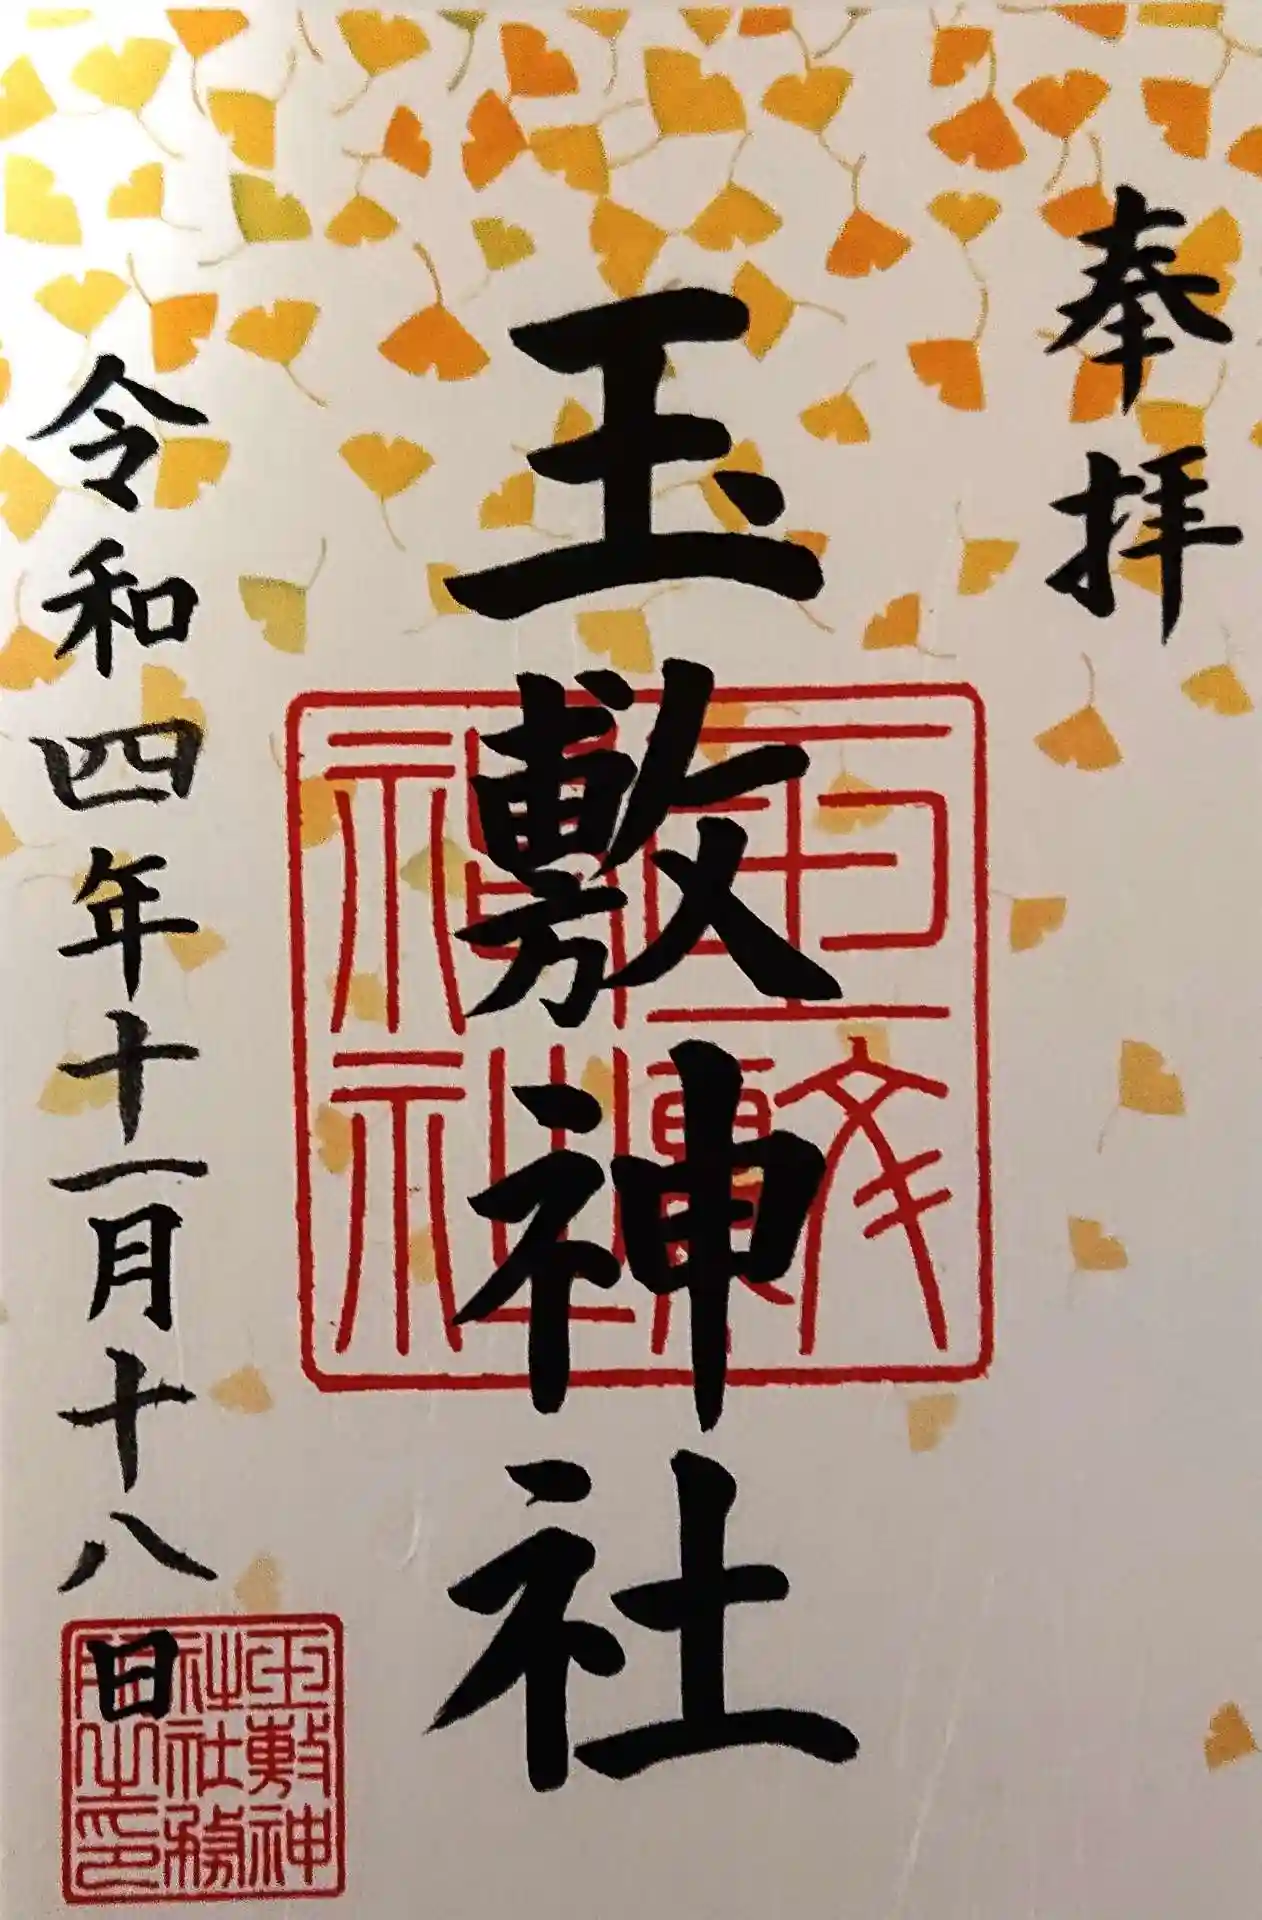 奉拝
玉敷神社
玉敷
神社
令和四年十一月十八日
玉敷神
社社務
所之印